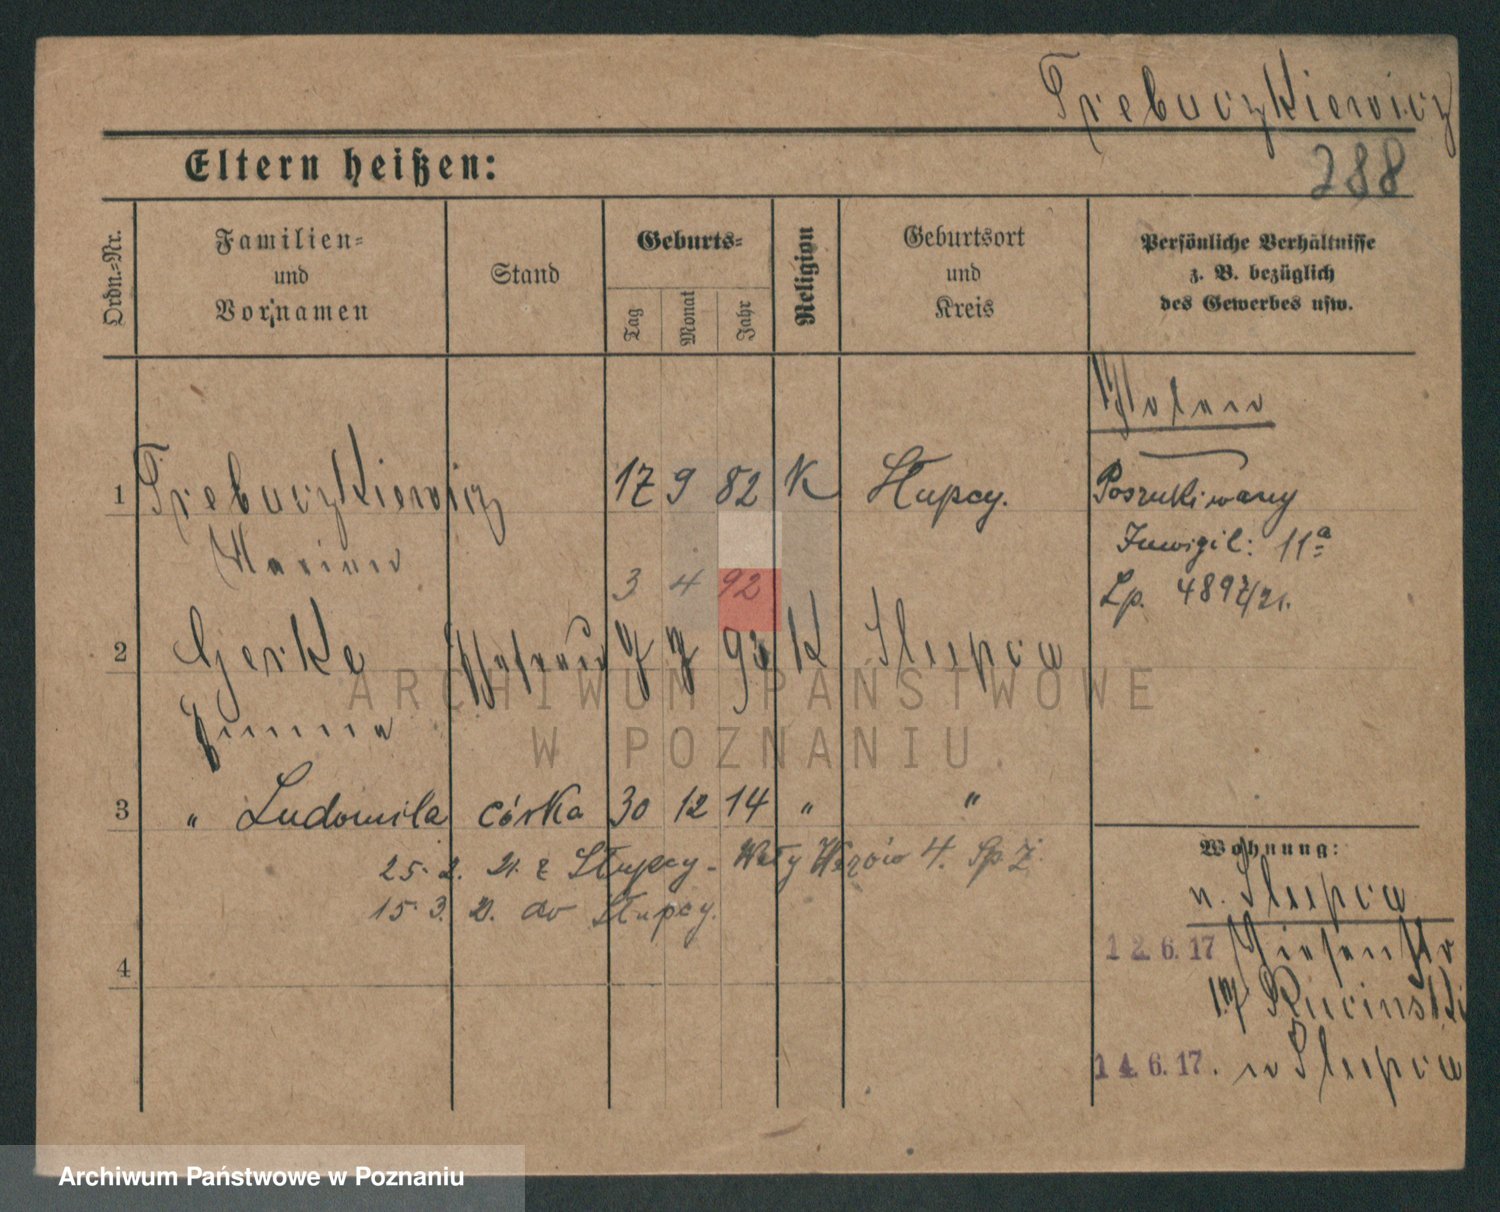 Trebuczkiewicz
Eltern heißen:
288
Ordn.-Nr.
Familien-
und
Vornamen
Stand
Geburts-
Tag
Monat
Jahr
Religion
Geburtsort
und
Kreis
Persönliche Verhältnisse
z. B. bezüglich
des Gewerbes usw.
1 Trebuczkiewicz 17 9 82 K Słupcy. Poszukiwany
Marian
Inwigil: 11a
3 4 92
Lp.
2 Gerke K Slupca
Emma
3 " Ludomila córka 30 12 14 " "
25. 2. 21. z Słupcy - Wały 4.
15. 3. 21. do Słupcy.
4
Wohnung:
n. Slupca
12. 6. 17
Rucinski
14. 6. 17. n Slupca
ARCHIWUM PAŃSTWOWE
W POZNANIU.
Archiwum Państwowe w Poznaniu